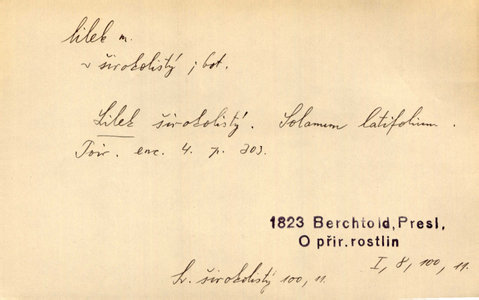 lilek m.
~ širokolistý; bot.
Lilek širokolistý. Solanum latifolium.
Poir. enc. 4. p. 303.
1823 Berchtold, Presl,
O přir. rostlin
I, 8, 100, 11.
širokolistý 100, 11.